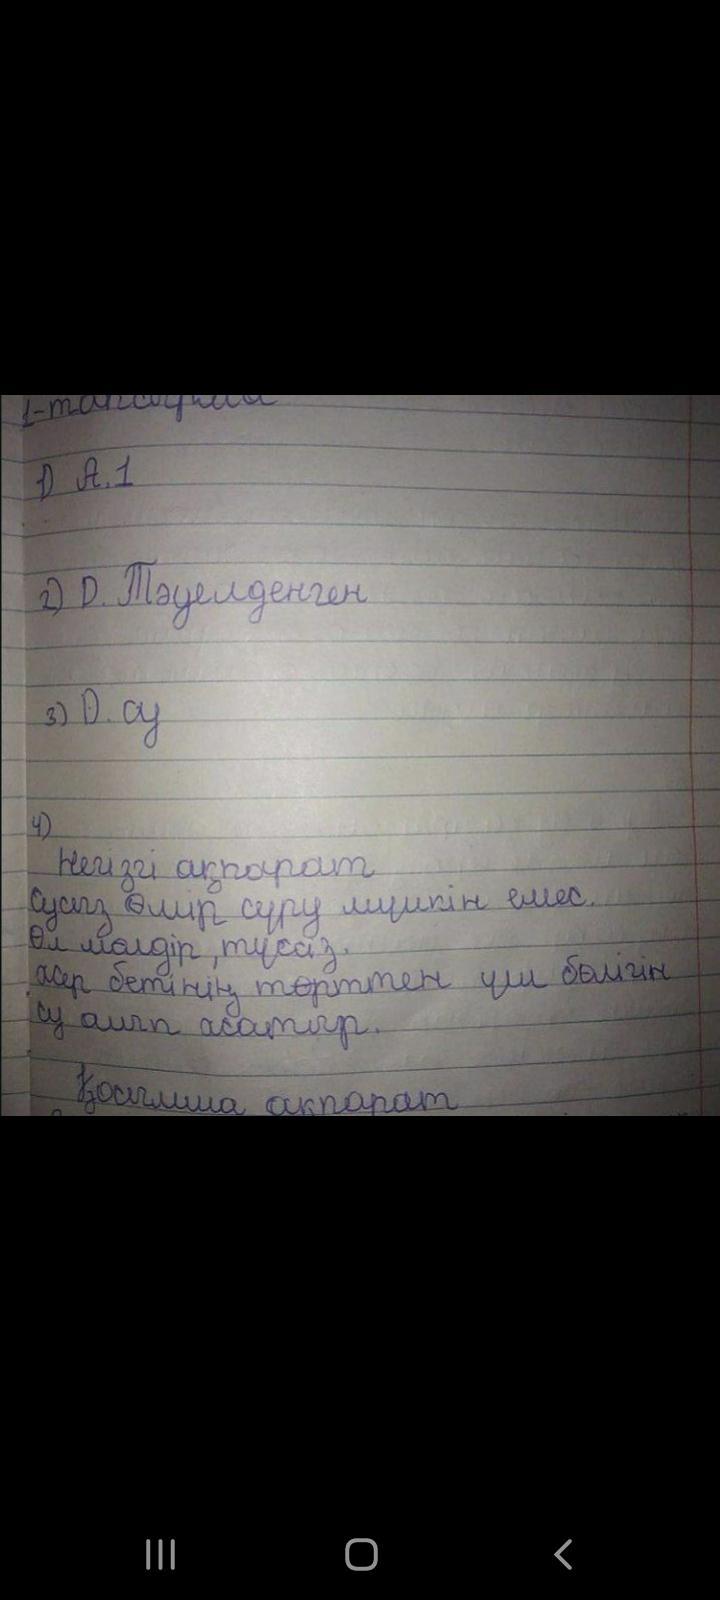 1-тапсырма
1) А.1
2) D. Тәуелденген
3) D. су
4)
Негізгі ақпарат
Сусыз Өмір сүру мүмкін емес.
Ол мөлдір, түссіз.
жер бетінің төрттен үш бөлігін
су алып жатыр.
Қосымша ақпарат